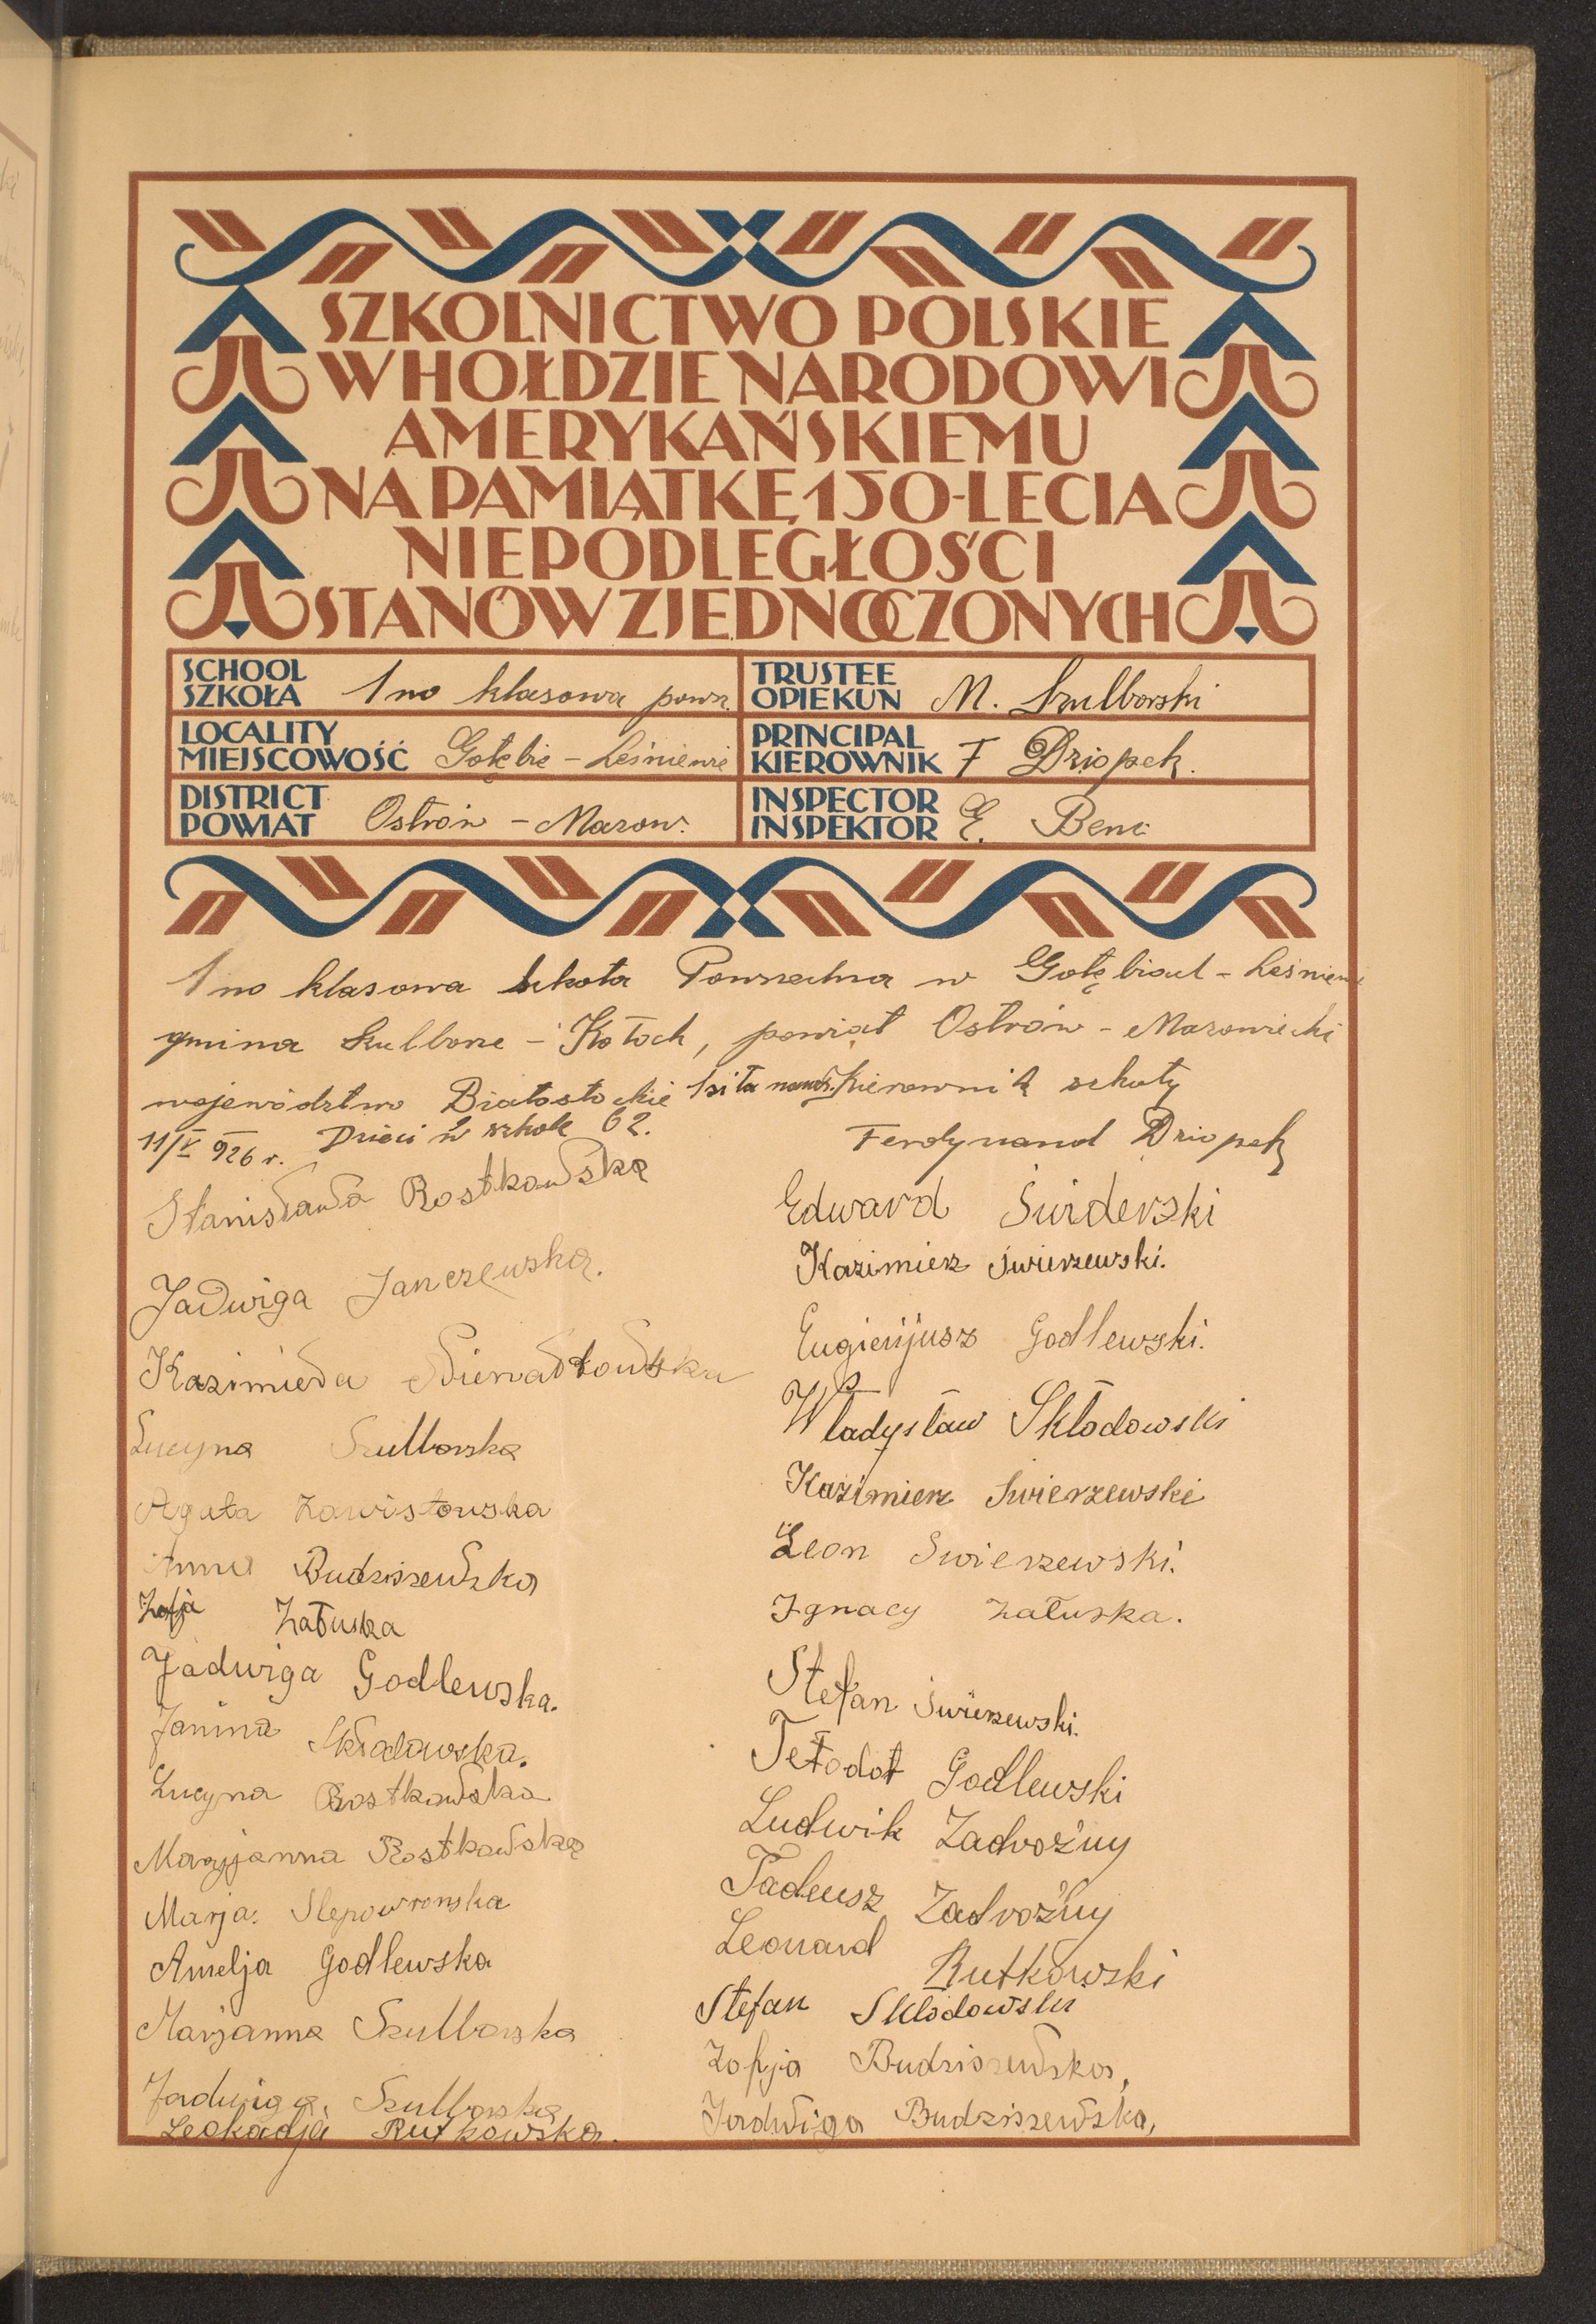 SZKOLNICTWO POLSKIE
W HOŁDZIE NARODOWI
AMERYKAŃSKIEMU
NA PAMIĄTKĘ 150-LECIA
NIEPODLEGŁOŚCI
STANÓW ZJEDNOCZONYCH
SCHOOL
SZKOŁA 1no klasowa powsz.
TRUSTEE
OPIEKUN M. Szulborski
LOCALITY
MIEJSCOWOŚĆ Gołębie - Leśniewie
PRINCIPAL
KIEROWNIK F Dziopek.
DISTRICT
POWIAT Ostrów - Mazow.
INSPECTOR
INSPEKTOR E. Benc
1no klasowa szkoła Powszechna w Gołębiach - Leśniewie
gmina Szulborze - Kotoch, powiat Ostrów - Mazowiecki
województwo Białostockie 1 siła naucz. Kierownik szkoły
11/V 926 r. Dzieci w szkole 62.
Ferdynand Dziopek
Stanisława Rostkowska
Jadwiga Janczewska.
Kazimiera
Lucyna Szulborska
Agata Zawistowska
Anna Budziszewska
Zofja Załuska
Jadwiga Godlewska.
Janina Skłodowska.
Lucyna Rostkowska
Maryjanna Rostkowska
Marja. Slepowronska
Amelja Godlewska
Marjanna Szulborska
Jadwiga. Szulborska
Leokadja Rutkowska.
Edward Świderski
Kazimierz Świerzewski.
Eugienjusz Godlewski.
Władysław Skłodowski
Kazimierz Swierzewski
Leon Swierzewski.
Ignacy Załuska.
Stefan Świerzewski.
Tełodot Godlewski
Ludwik Zadroźny
Tadeusz Zadroźny
Leonard Rutkowski
Stefan Skłodowski
Zofija Budziszewska,
Jadwiga Budziszewska,